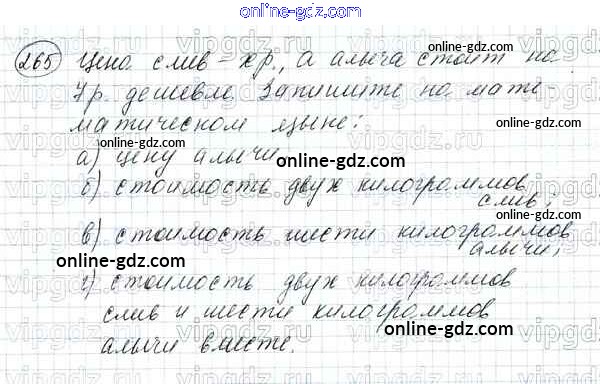 online-gdz.com
265 Цена слив - х р., а алыча стоит на
online-gdz.com
7 р. дешевле. Запишите на мате-
матическом языке:
online-gdz.com
а) цену алычи
online-gdz.com
б) стоимость двух килограммов
слив;
online-gdz.com
в) стоимость шести килограммов
алычи;
online-gdz.com
г) стоимость двух килограммов
слив и шести килограммов
online-gdz.com
алычи вместе.